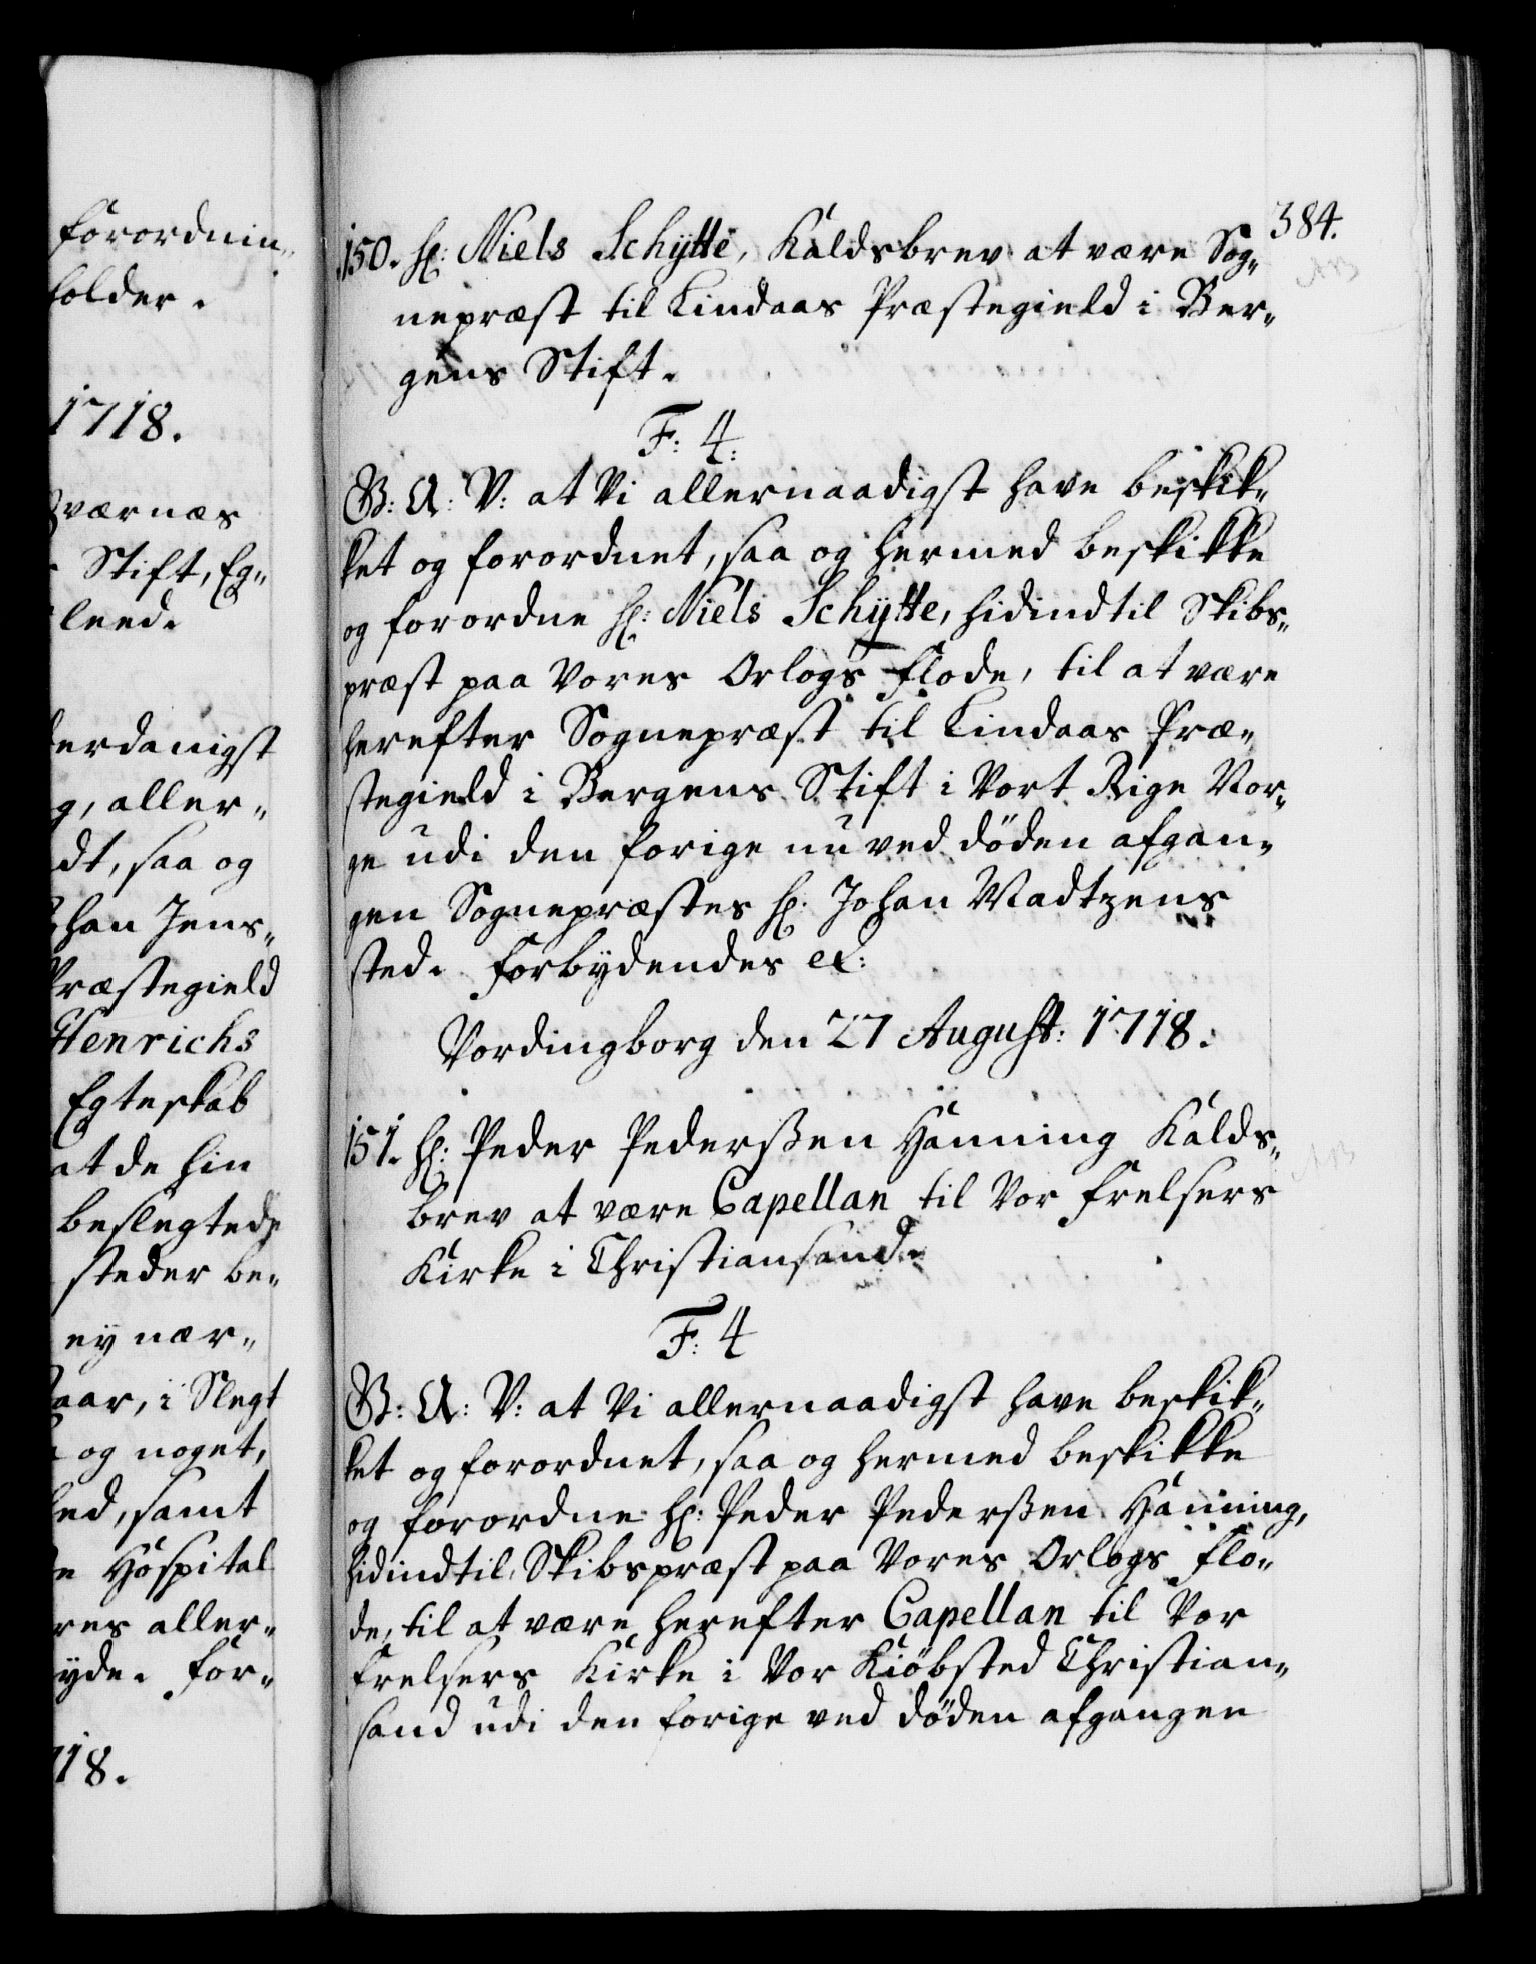 forordnin„
holder.
1718.
værnæs
Stift, Eg„
leed.
derdanigst
g, aller„
dt, saa og
han Jens„
Præstegield
Henrichs
Egteskab
at de hin
beslegtede
steder be„
ey nær„
aar, i Slegt
og noget,
ed, samt
Hospital
res aller„
yde. For„
718.
384.
150. Hr: Niels Schÿtte, Kaldsbrev at være Sog„
nepræst til Lindaas Præstegield i Ber„
gens Stift.
F: 4:
G: A: V: at Vi allernaadigst have beskik„
ket og forordnet, saa og hermed beskikke
og forordne Hr: Niels Schÿtte, hidindtil Skibs„
præst paa Vores Orlogs Flode, til at være
herefter Sognepræst til Lindaas Præ„
stegield i Bergens Stift i Vort Rige Nor„
ge udi den forige nu ved döden afgan„
gen Sognepræstes Hr: Johan Madtzens
sted. Forbydendes etc:
Vordingborg den 27 August: 1718.
151. Hr: Peder Pederßen Hanning Kalds„
brev at være Capellan til Vor Frelsers
Kirke i Christiansand.
F: 4
G: A: V: at Vi allernaadigst have beskik„
ket og forordnet, saa og hermed beskikke
og forordne Hr: Peder Pederßen Hanning,
hidindtil Skibspræst paa Vores Orlogs Flo„
de, til at være herefter Capellan til Vor
Frelsers Kirke i Vor Kiöbsted Christian„
sand udi den forige ved döden afgangen